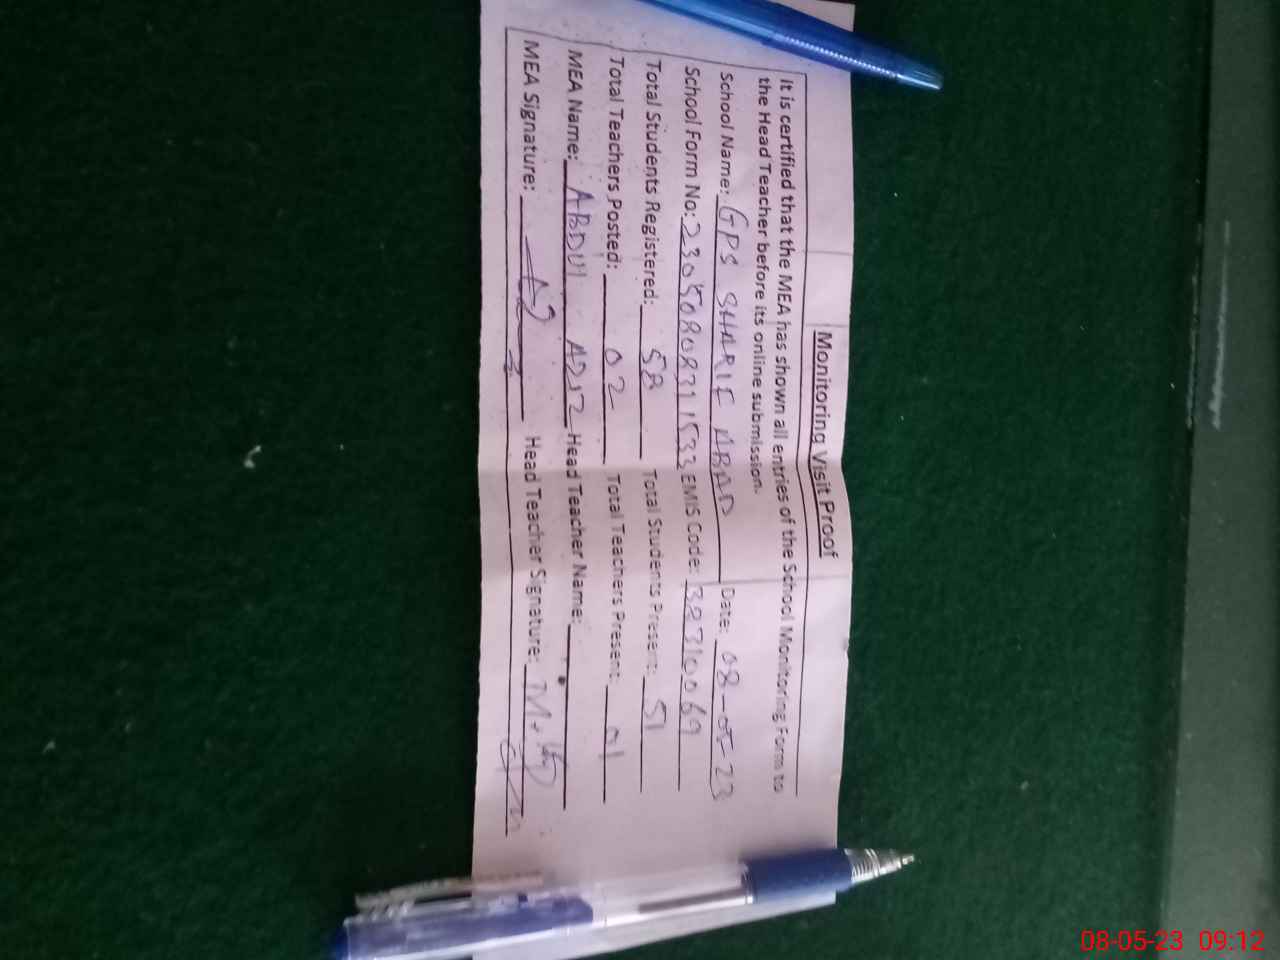 Monitoring Visit Proof
It is certified that the MEA has shown all entries of the School Monitoring Form to
the Head Teacher before its online submission.
School Name: GPS SHARIF ABAD Date: 08-05-23
School Form No: EMIS Code: 38310069
Total Students Registered: 58 Total Students Present: 51
Total Teachers Posted: 02 Total Teachers Present: 01
MEA Name: ABDUL Head Teacher Name:
MEA Signature: Head Teacher Signature:
08-05-23 09:12